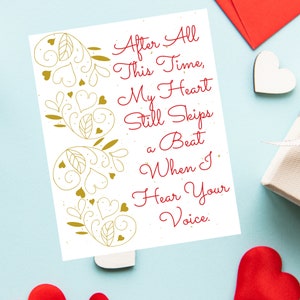 After All
This Time,
My Heart
Still Skips
a Beat
When I
Hear Your
Voice.